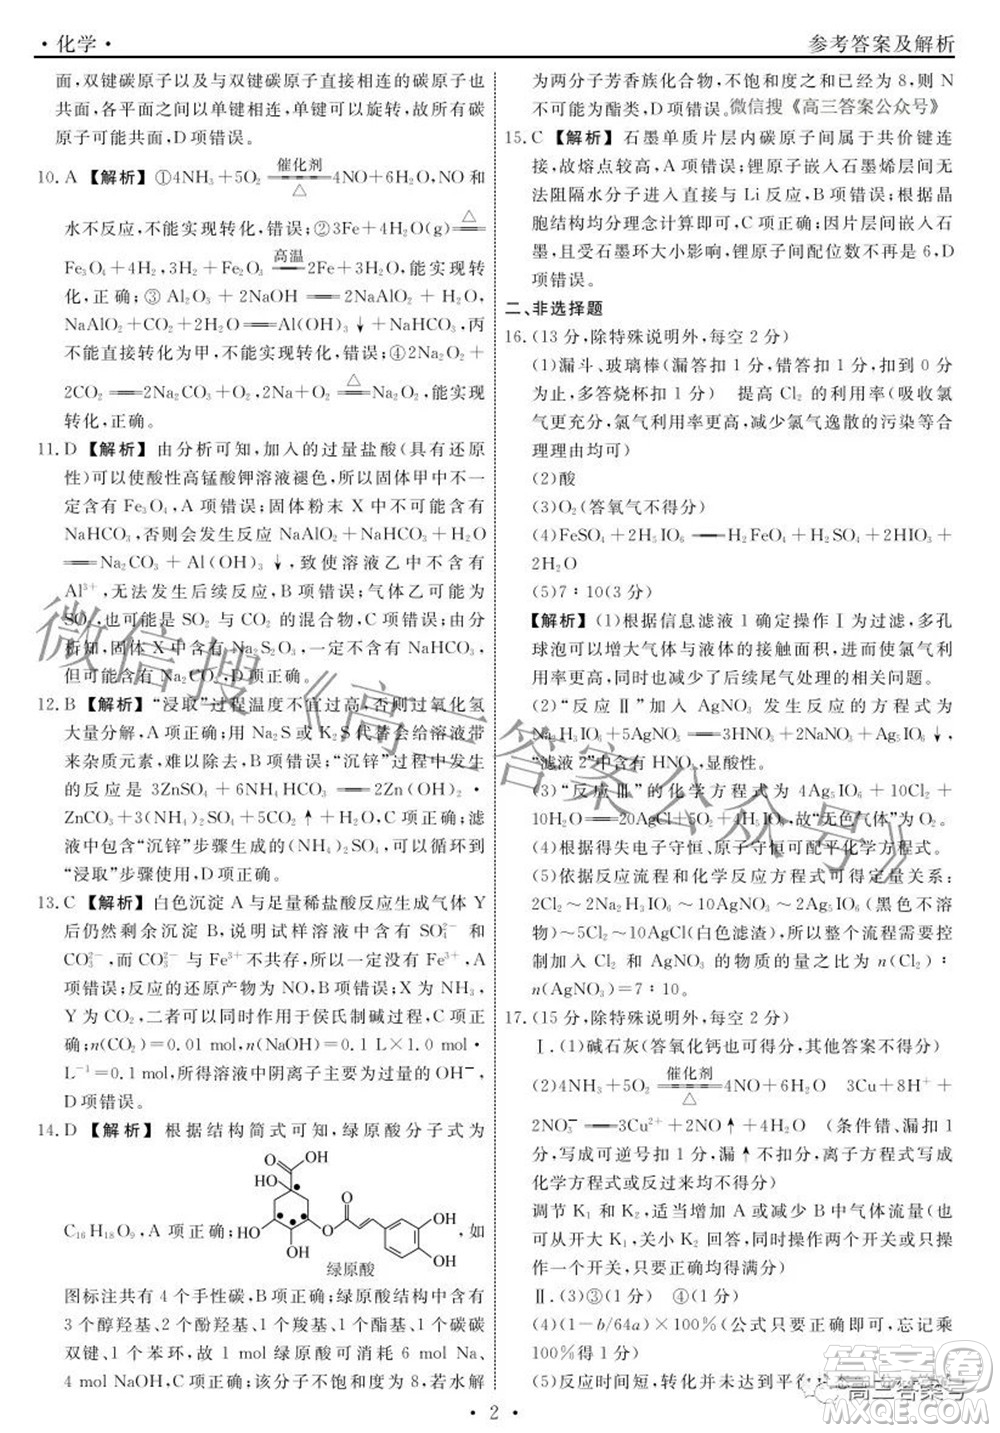 · 化学 ·
参考答案及解析
面，双键碳原子以及与双键碳原子直接相连的碳原子也
共面，各平面之间以单键相连，单键可以旋转，故所有碳
原子可能共面，D 项错误。
10. A 【解析】①4NH₃+5O₂ ══(催化剂/△) 4NO+6H₂O，NO 和
水不反应，不能实现转化，错误；②3Fe+4H₂O(g) ══(△)
Fe₃O₄+4H₂，3H₂+Fe₂O₃ ══(高温) 2Fe+3H₂O，能实现转
化，正确；③ Al₂O₃ + 2NaOH ══ 2NaAlO₂ + H₂O，
NaAlO₂+CO₂+2H₂O══Al(OH)₃↓+NaHCO₃，丙
不能直接转化为甲，不能实现转化，错误；④2Na₂O₂+
2CO₂══2Na₂CO₃+O₂，2Na₂O₂ ══(△) 2Na₂O+O₂，能实现
转化，正确。
11. D 【解析】由分析可知，加入的过量盐酸（具有还原
性）可以使酸性高锰酸钾溶液褪色，所以固体甲中不一
定含有 Fe₃O₄，A 项错误；固体粉末 X 中不可能含有
NaHCO₃，否则会发生反应 NaAlO₂ + NaHCO₃ + H₂O
══Na₂CO₃+Al(OH)₃↓，致使溶液乙中不可能含有
Al³⁺，无法发生后续反应，B 项错误；气体乙可能为
SO₂，也可能为 SO₂ 与 CO₂ 的混合物，C 项错误；由分
析知，固体 X 中含有 Na₂S₂O₃，可能含有 Na₂SO₃，不可
能含有 Na₂CO₃，D 项正确。
12. B 【解析】“浸取”过程温度不宜过高，否则过氧化氢
大量分解，A 项正确；用 Na₂S 或 K₂S 代替会给溶液带
来杂质元素，一定会影响纯度，B 项错误；“沉锌”时发生
的反应是 3ZnSO₄+6NH₄HCO₃══2Zn(OH)₂·
ZnCO₃+3(NH₄)₂SO₄+5CO₂↑+H₂O，C 项正确；滤
液中包含“沉锌”步骤生成的 (NH₄)₂SO₄，可以循环到
“浸取”步骤使用，D 项正确。
13. C 【解析】白色沉淀 A 与足量稀盐酸反应生成气体 Y
后仍然剩余沉淀 B，说明试样溶液中有 SO₄²⁻ 和
CO₃²⁻，CO₃²⁻ 与 Fe³⁺ 不共存，所以一定不含有 Fe³⁺，A
项错误；反应的还原产物为 NO，B 项错误；X 为 NH₃，
Y 为 CO₂，二者可以同时作用于侯氏制碱过程，C 项正
确；n(CO₂)=0.01 mol，n(NH₃)=0.01 mol，0.1 L×1 mol·
L⁻¹=0.1 mol，所得溶液中阴离子主要为过量的 OH⁻，
D 项错误。
14. D 【解析】根据结构简式可知，绿原酸分子式为
C₁₆H₁₈O₉，A 项正确；
O
OH
HO
HO
OH
O
O
OH
OH
绿原酸
，如
图标注共有 4 个手性碳，B 项正确；绿原酸结构中含有
3 个醇羟基、2 个酚羟基、1 个羧基、1 个酯基、1 个碳碳
双键、1 个苯环，故 1 mol 绿原酸可消耗 6 mol Na、
4 mol NaOH，C 项正确；该分子不饱和度为 8，若水解
为两分子芳香族化合物，不饱和度之和已经为 8，则 N
不可能为酯类，D 项错误。微信搜《高三答案公众号》
15. C 【解析】石墨单质片层内碳原子间属于共价键连
接，故熔点较高，A 项错误；锂原子嵌入石墨烯层间，无
法阻隔水分子进入直接与 Li 反应，B 项错误；根据晶
胞结构均分理念计算即可，C 项正确；因片层间嵌入石
墨，且受石墨环大小影响，锂原子间配位数不再是 6，D
项错误。
二、非选择题
16. (13 分，除特殊说明外，每空 2 分)
(1)漏斗、玻璃棒（漏答扣 1 分，错答扣 1 分，扣到 0 分
为止，多答烧杯扣 1 分） 提高 Cl₂ 的利用率（吸收氯
气更充分，氯气利用率更高，减少氯气逸散的污染等合
理理由均可）
(2)酸
(3)O₂（答氧气不得分）
(4)FeSO₄+2H₅IO₆══H₂FeO₄+2HIO₃+H₂SO₄+
2H₂O
(5)7∶10(3 分)
【解析】(1)根据信息滤液 1 确定操作Ⅰ为过滤，多孔
球泡可以增大气体与液体的接触面积，加快反应速率
的同时也减少了后续尾气处理的相关问题。
(2)“反应Ⅱ”加入 AgNO₃ 发生反应的方程式为
Na₂H₃IO₆+5AgNO₃══3HNO₃+2NaNO₃+Ag₅IO₆↓，
“滤液 2”中含有 HNO₃，显酸性。
(3)“反应Ⅲ”的化学方程式为 4Ag₅IO₆ + 10Cl₂ +
10H₂O══20AgCl+5O₂+4H₅IO₆，故“无色气体”为 O₂。
(4)根据得失电子守恒、原子守恒可配平化学方程式。
(5)依据反应流程和反应方程式可得定量关系：
2Cl₂～2NaIO₃～2Na₂H₃IO₆～2Ag₅IO₆（黑色不溶
物）～5Cl₂～10AgCl（白色滤渣），所以整个流程需要
加入 Cl₂ 和 AgNO₃ 的物质的量之比为 n(Cl₂)∶
n(AgNO₃)=7∶10。
17. (15 分，除特殊说明外，每空 2 分)
Ⅰ. (1)碱石灰（答氧化钙也可得分，其他答案不得分）
(2)4NH₃+5O₂ ══(催化剂/△) 4NO+6H₂O 3Cu+8H⁺+
2NO₃⁻══3Cu²⁺+2NO↑+4H₂O （条件错、漏扣 1
分，写成可逆号扣 1 分，漏↑不扣分，离子方程式写成
化学方程式或写其他反应均不得分）
调节 K₁ 和 K₂，适当增加 A 或减少 B 中气体流速（只
开大 K₁、只减小 K₂ 到合适位置即可得分，可以只操作
一个开关，也可以同时调整两个开关）
Ⅱ. (3)③(1 分) ④(1 分)
(4)(1−b/64a)×100%（公式只要正确即可，忘记乘
100%得 1 分）
(5)反应时间短，转化率尚未达到平衡
· 2 ·
微信搜《高三答案公众号》
高三答案号
答案圈
MXQE.COM